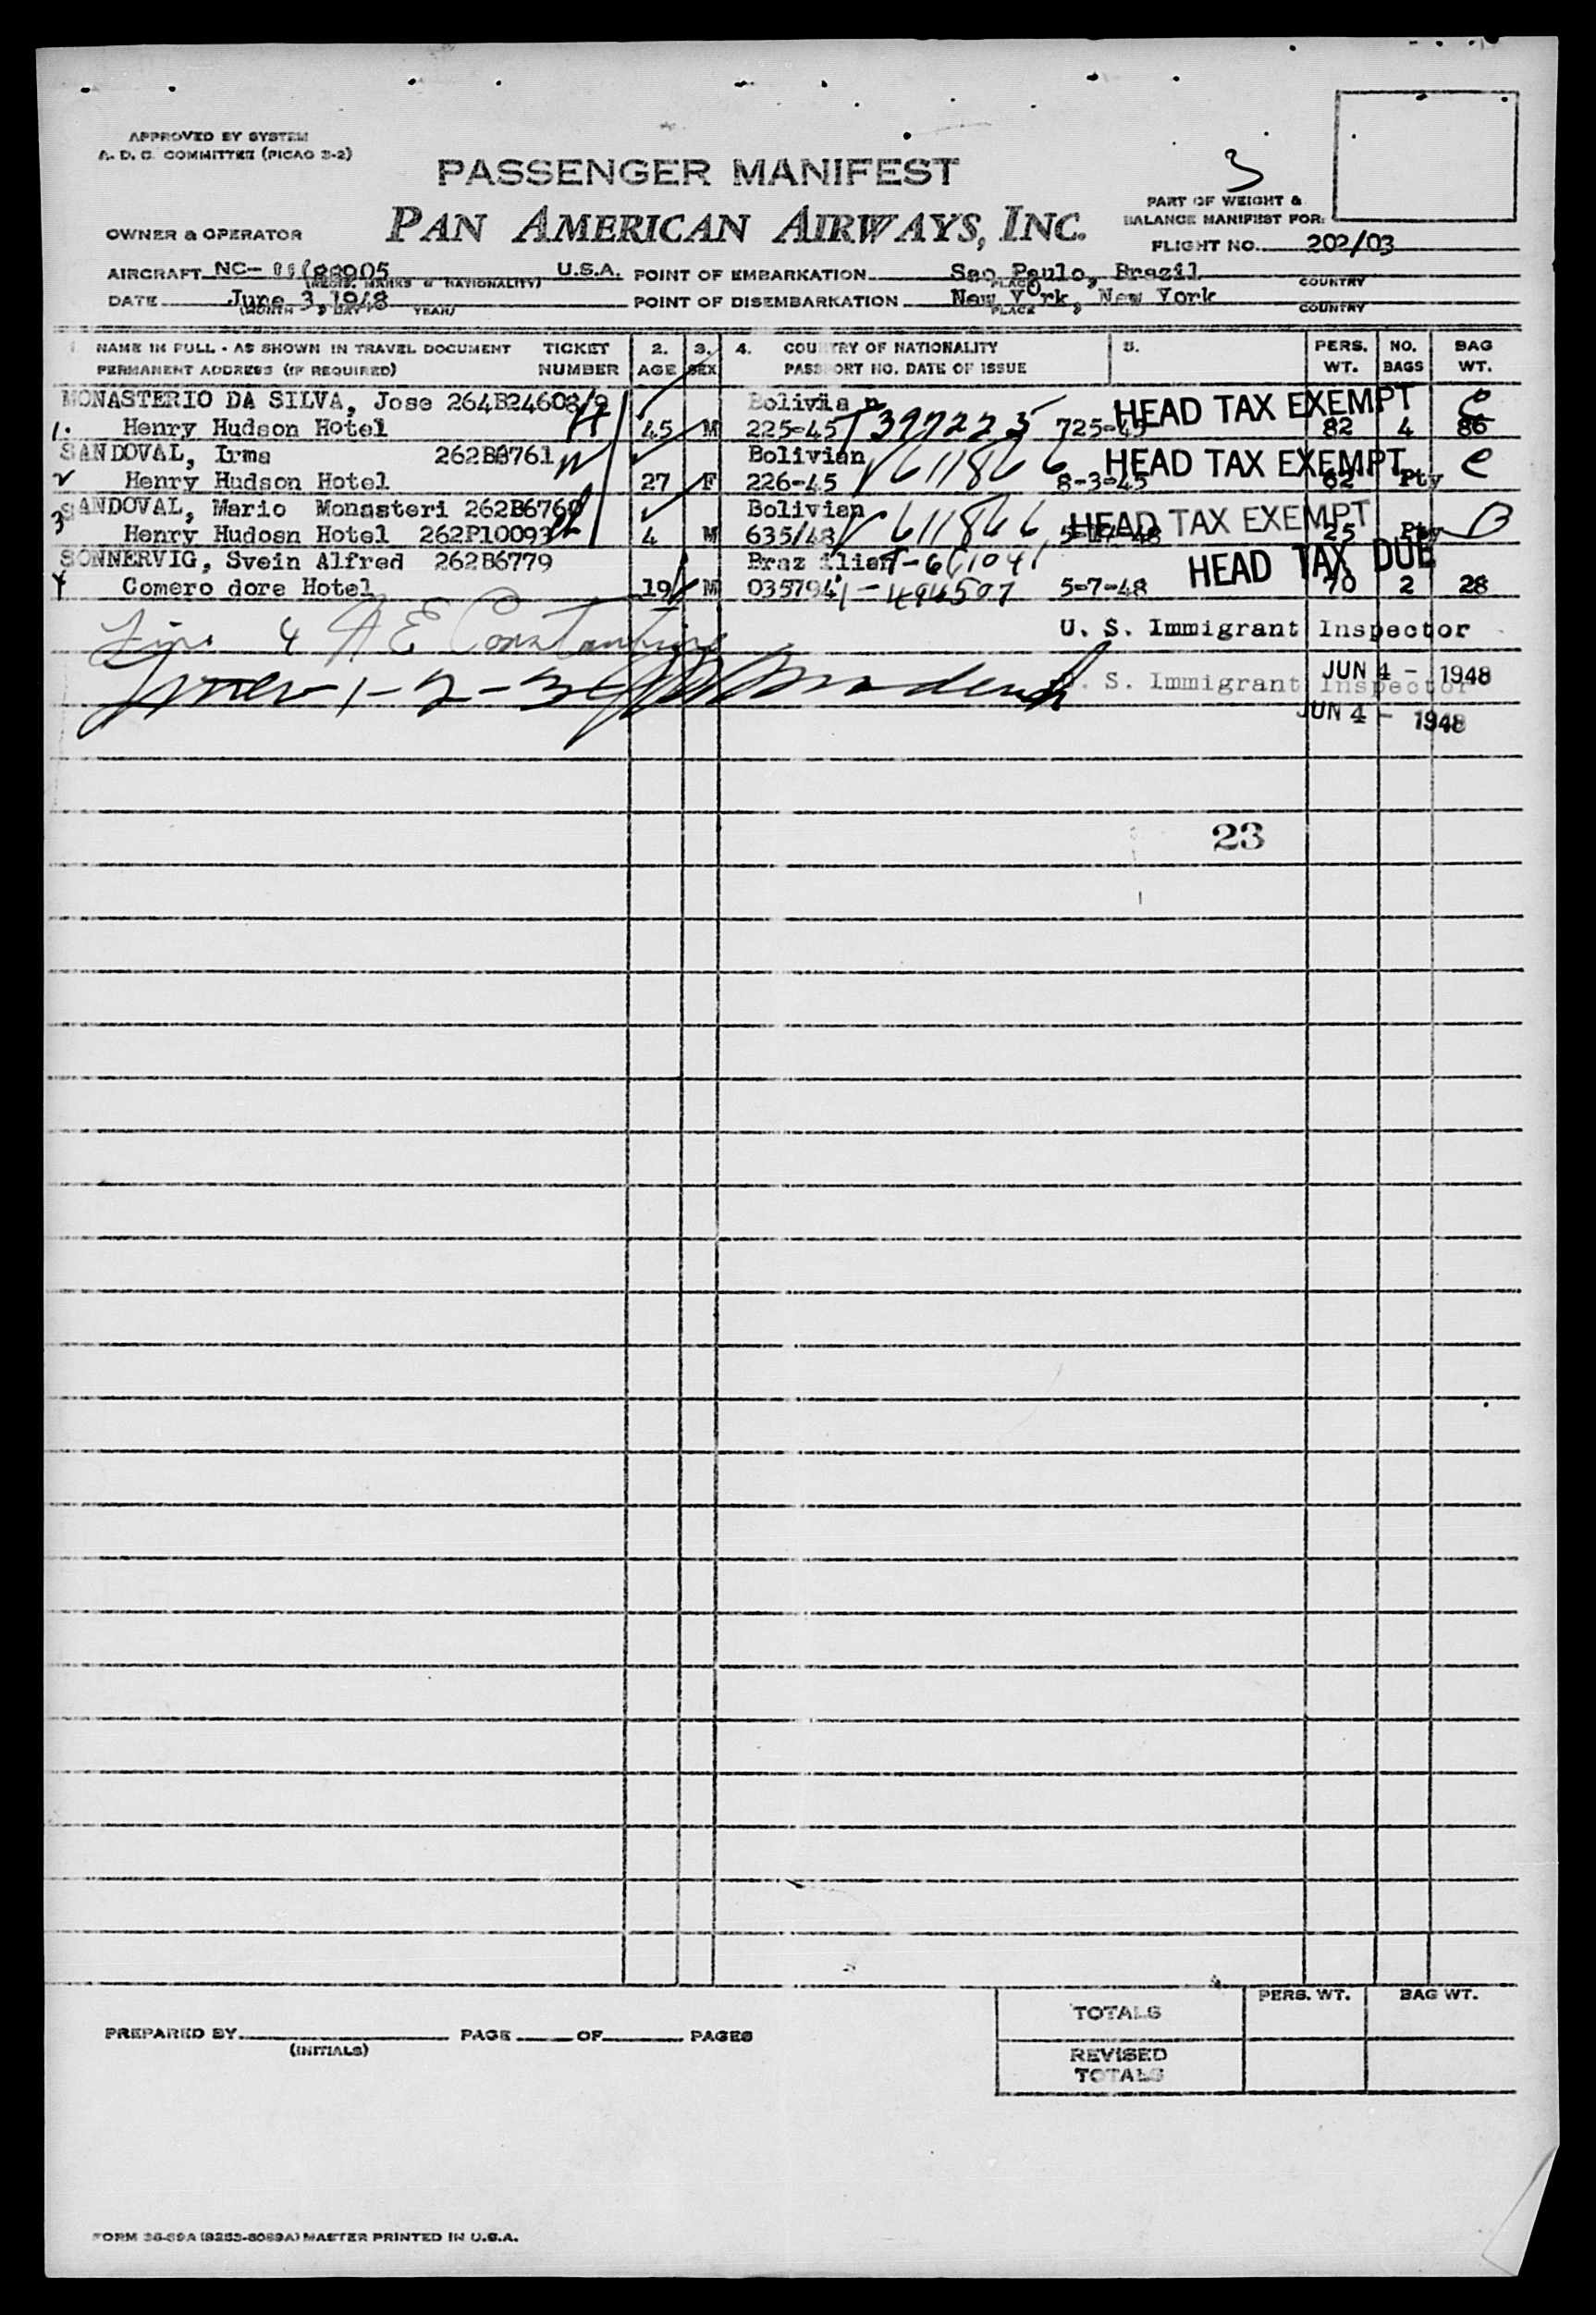 APPROVED BY SYSTEM
A. D. C. COMMITTEE (PICAO 3-2)
PASSENGER MANIFEST
3
PART OF WEIGHT &
BALANCE MANIFEST FOR:
OWNER & OPERATOR
PAN AMERICAN AIRWAYS, INC.
FLIGHT NO. 202/03
AIRCRAFT NC- 88905 U.S.A. POINT OF EMBARKATION Sao Paulo, Brazil
(REGIS. MARKS & NATIONALITY) PLACE COUNTRY
DATE June 3, 1948 POINT OF DISEMBARKATION New York, New York
(MONTH DAY YEAR) PLACE COUNTRY
NAME IN FULL - AS SHOWN IN TRAVEL DOCUMENT TICKET 2. 3. 4. COUNTRY OF NATIONALITY 5. PERS. NO. BAG
PERMANENT ADDRESS (IF REQUIRED) NUMBER AGE SEX PASSPORT NO. DATE OF ISSUE WT. BAGS WT.
MONASTERIO DA SILVA, Jose 264B24608/9 Bolivia n HEAD TAX EXEMPT
1. Henry Hudson Hotel 45 M 225-45 T397225 725-45 82 4 86
SANDOVAL, Irma 262B8761 Bolivian HEAD TAX EXEMPT
2 Henry Hudson Hotel 27 F 226-45 V611866 8-3-45 62 Pty
SANDOVAL, Mario Monasteri 262B6760 Bolivian HEAD TAX EXEMPT
3 Henry Hudosn Hotel 262P10093 4 M 635/48 V611866 25 Pty
SONNERVIG, Svein Alfred 262B6779 Braz ilian T-661041 HEAD TAX DUE
4 Comero dore Hotel 19 M 035794 1-494507 5-7-48 70 2 28
Line 4 A E Constantine U. S. Immigrant Inspector
JUN 4 - 1948
Lines 1-2-3 U. S. Immigrant Inspector
JUN 4 - 1948
23
TOTALS PERS. WT. BAG WT.
PREPARED BY PAGE OF PAGES
(INITIALS)
REVISED
TOTALS
FORM 36-69A (9253-6089A) MASTER PRINTED IN U.S.A.